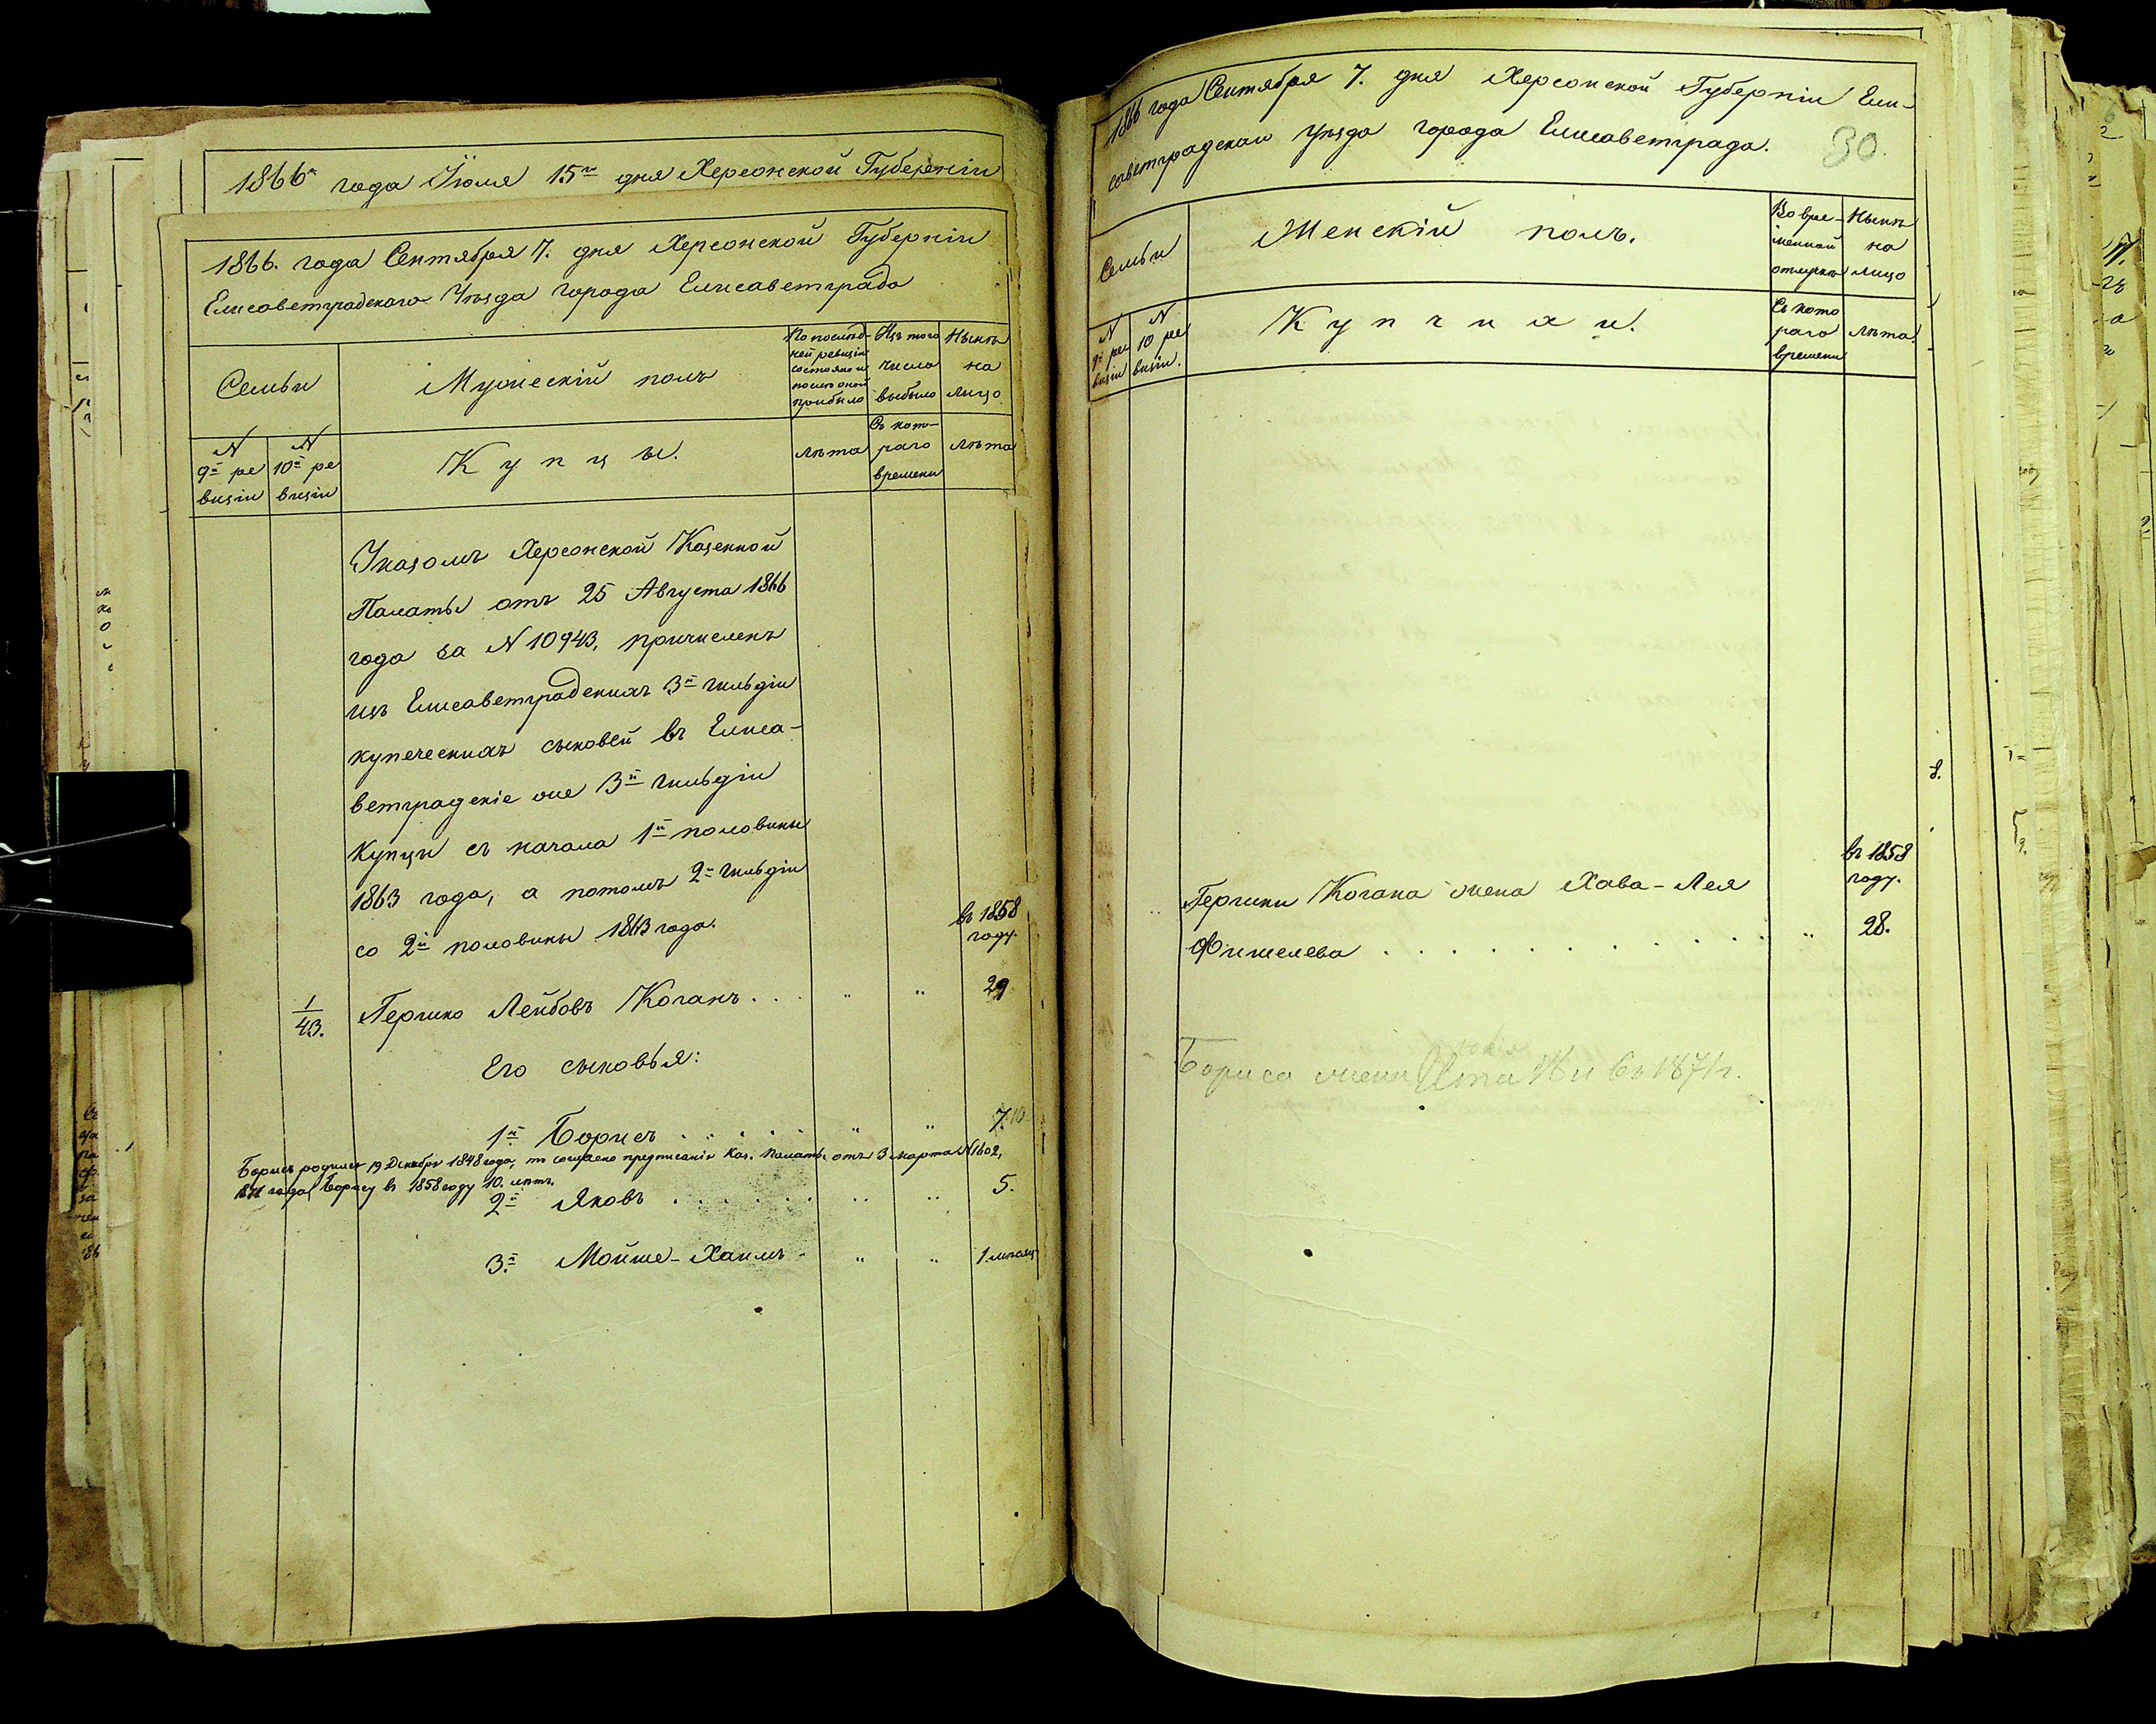 1866 года Іюля 15го дня Херсонской Губерніи
1866. года Сентября 7. дня Херсонской Губерніи
Елисаветградскаго Уѣзда города Елисаветграда
Семьи
Мужескій полъ
По послѣд-
ней ревизіи
состояло и
послѣ оной
прибыло
Изъ того
числа
выбыло
Нынѣ
на
лицо
N
9й ре
визіи
N
10й ре
визіи
Купцы.
лѣта
Съ кото-
раго
времени
лѣта
Указомъ Херсонской Казенной
Палаты отъ 25 Августа 1866
года за N 10943, причисленъ
изъ Елисаветградскихъ 3й гильдіи
купеческихъ сыновей въ Елиса-
ветградскіе же 3й гильдіи
Купцы съ начала 1й половины
1863 года, а потомъ 2й гильдіи
со 2й половины 1863 года.
въ 1858
году.
1/43. Гершко Лейбовъ Коганъ . . . " " 29
Его сыновья:
1й Борисъ . . . . . " " 7. 10
Борисъ родился 19 Декабря 1848 года, то согласно предписанія Каз. Палаты отъ 3 марта N 1602,
1871 года, Борису въ 1858 году 10. лѣтъ.
2й Яковъ . . . . . . " " 5.
3й Мойше-Хаимъ . " " 1 мѣсяц
1866 года Сентября 7. дня Херсонской Губерніи Ели-
саветградскаго Уѣзда города Елисаветграда.
30.
Семьи
Женскій полъ.
Во вре-
менной
отлучкѣ
Нынѣ
на
лицо
N
9й ре
визіи
N
10й ре
визіи.
Купчихи.
Съ кото
раго
времени
лѣта.
въ 1858
году.
Гершки Когана жена Хава-Лея
Фишелева . . . . . . . . . . . " 28.
Бориса жена Ита 18 л въ 1871 г.